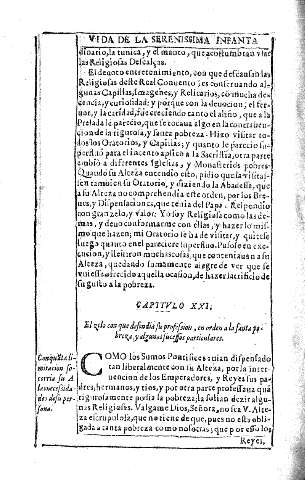 VIDA DE LA SERENISSIMA INFANTA
dinario, la tunica, y el manto, que acostumbran
las Religiosas Descalças.
El deuoto entretenimiento, con que descansan las
Religiosas deste Real Conuento, es conseruando al-
gunas Capillas, Imagenes, y Relicarios, cõ mucha de-
cencia, y curiosidad; y porque con la deuocion, el fer-
uor, y la caridad, fue creciendo tanto el aliño, que a la
Prelada le parecio, que se tocaua algo en la contrauen-
cion de la rigurosa, y santa pobreza. Hizo visitar to-
dos los Oratorios, y Capillas; y quanto le parecio su-
perfluo para el intento aplicò a la Sacristia, otra parte
embiò a diferentes Iglesias, y Monasterios pobres
Quando su Alteza entendio esto, pidio que la visitas-
sen tambien su Oratorio, y diziendo la Abadessa, que
a su Alteza no comprehendia este orden, por los Bre-
ues, y Dispensaciones, que tenia del Papa. Respondio
con gran zelo, y valor: Yo soy Religiosa como las de-
mas, y deuo conformarme con ellas, y hazer lo mis-
mo que hazen; mi Oratorio se ha de visitar, y quitese
luego quanto en el pareciere superfluo. Pusose en exe-
cucion, y hizieron muchas cosas, que contentauan a su
Alteza, quedando sumamente alegre de ver que se
vuiesse ofrecido aquella ocasion, de hazer sacrificio de
su gusto a la pobreza.
CAPITVLO XXI.
El zelo con que defendia su profession, en orden a la santa po-
breza, y algunos sucessos particulares.
Con quãta li-
mitacion so-
corria su A.
las necessida
des de su per-
sona.
COMO los Sumos Pontifices auian dispensado
tan liberalmente con su Alteza, por la inter-
uencion de los Emperadores, y Reyes sus pa-
dres, hermanos, y tios, y por otra parte professaua quã
rigurosamente posia la pobreza; la solian dezir algu-
nas Religiosas. Valgame Dios, Señora, no sea V. Alte-
za escrupulosa, que no tiene de que, pues no està obli-
gada a tanta pobreza como nosotras; que por esso los
Reyes,